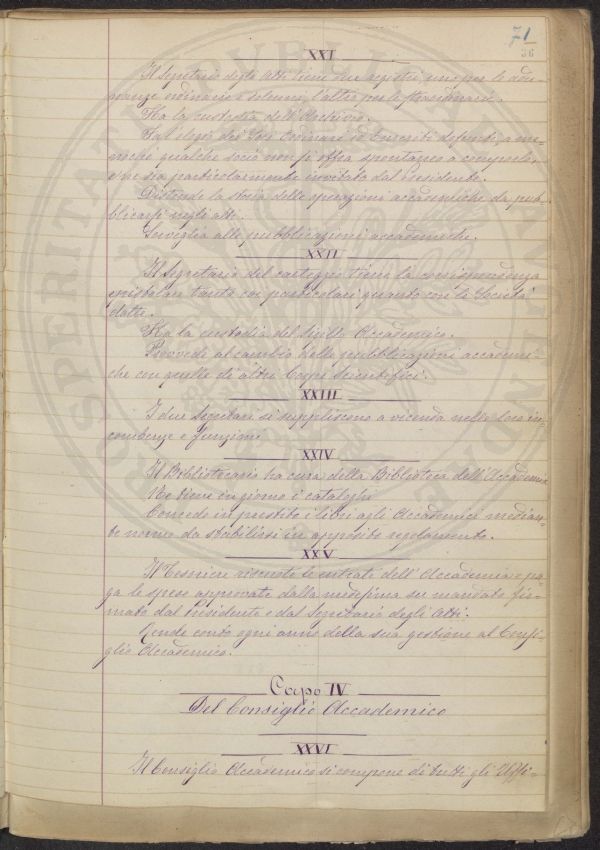 71
36
XXI
Il Segretario degli Atti tiene due registri, uno per le adu-
nanze ordinarie e solenni, l'altro per le straordinarie.
Ha la custodia dell'Archivio.
Fa l'elogio dei Soci Ordinari ed Emeriti defunti, a me-
noché qualche socio non si offra spontaneo a comporlo,
o ne sia particolarmente invitato dal Presidente.
Distende la storia delle operazioni accademiche da pub-
blicarsi negli atti.
Sorveglia alle pubblicazioni accademiche.
XXII
Il Segretario del carteggio tiene la corrispondenza
epistolare tanto coi particolari quanto con le Società
dotte.
Ha la custodia del Sigillo Accademico.
Provvede al cambio delle pubblicazioni accademi-
che con quelle di altri Corpi Scientifici.
XXIII
I due Segretari si suppliscono a vicenda nelle loro in-
combenze e funzioni.
XXIV
Il Bibliotecario ha cura della Biblioteca dell'Accademia
Ne tiene in giorno i cataloghi
Concede in prestito i libri agli Accademici median-
te norme da stabilirsi in apposito regolamento.
XXV
Il Tesoriere riscuote le entrate dell'Accademia e pa-
ga le spese approvate dalla medesima su mandato fir-
mato dal Presidente e dal Segretario degli Atti.
Rende conto ogni anno della sua gestione al Consi-
glio Accademico.
Capo IV
Del Consiglio Accademico
XXVI
Il Consiglio Accademico si compone di tutti gli Uffi-
PROSPERITATI PUBLICAE AUGENDAE